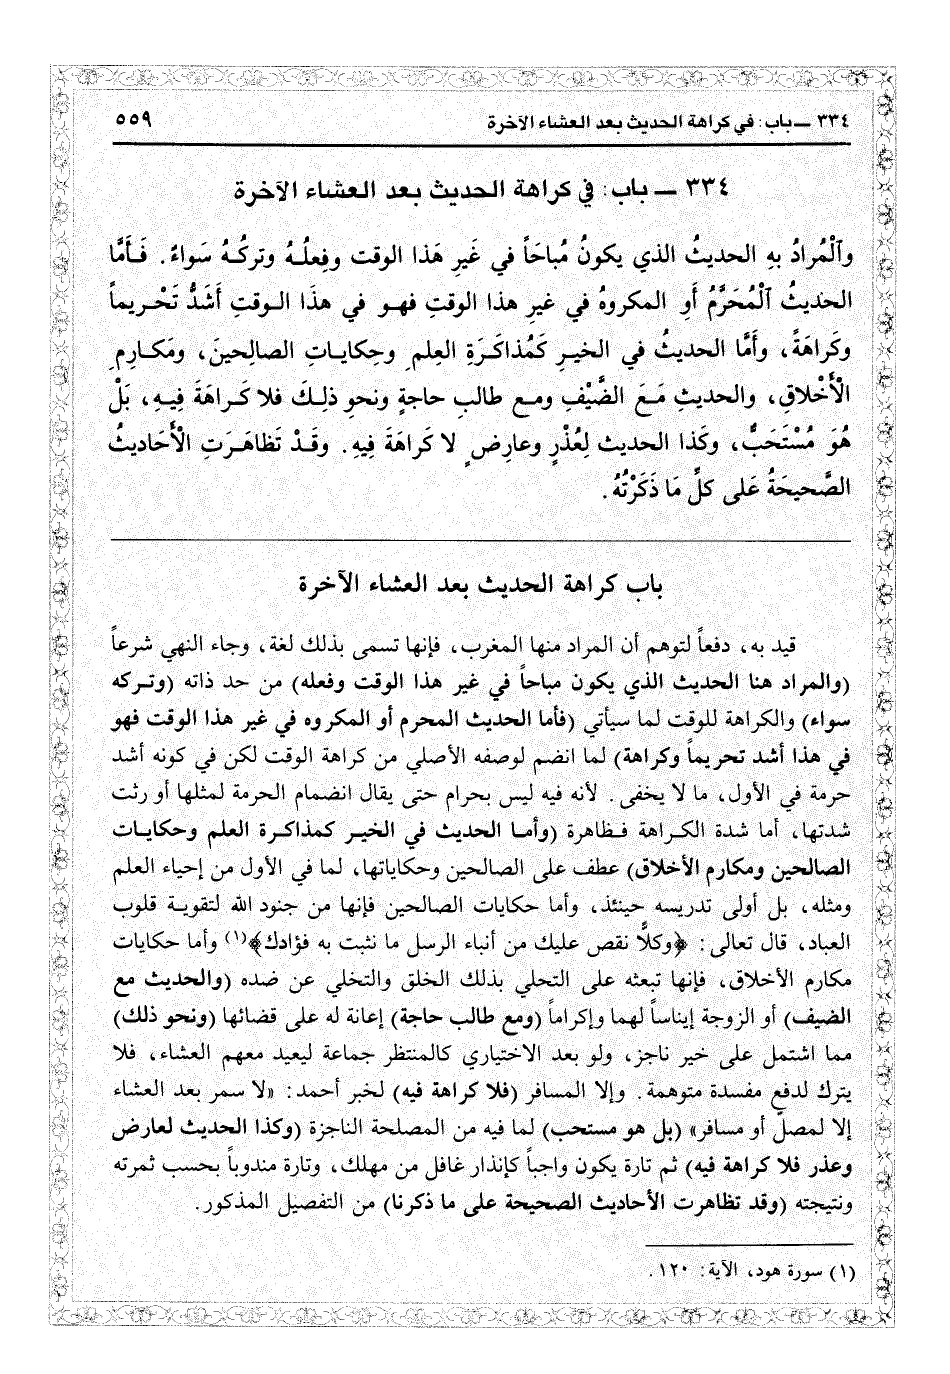 ٣٣٤ ــ باب: في كراهة الحديث بعد العشاء الآخرة ٥٥٩
٣٣٤ ــ باب: في كراهة الحديث بعد العشاء الآخرة
وٱلْمُرادُ بهِ الحديثُ الذي يكونُ مُباحَاً في غَيرِ هَذا الوقت وفِعلُـهُ وتركُـهُ سَواءٌ. فَـأَمَّا
الحديثُ ٱلْمُحَرَّمُ أَوِ المكروهُ في غيرِ هذا الوقتِ فهـو في هذَا الـوقتِ أَشَدُّ تَحْـريماً
وكَراهَةً، وأَمَّا الحديثُ في الخيـرِ كَمُذاكَـرَةِ العِلمِ وحِكاياتِ الصالِحينَ، ومَكـارِمِ
الْأَخْلاقِ، والحديثِ مَـعَ الضَّيْفِ ومـع طالبِ حاجةٍ ونحوِ ذلِـكَ فلا كَـراهَةَ فِيـهِ، بَلْ
هُوَ مُسْتَحَبٌّ، وكَذا الحديث لِعُذْرٍ وعارِضٍ لا كَراهَةَ فِيهِ. وقَـدْ تَظاهَـرَتِ الْأَحَاديثُ
الصَّحيحَةُ عَلى كلِّ مَا ذَكَرْتُهُ.
باب كراهة الحديث بعد العشاء الآخرة
قيد به، دفعاً لتوهم أن المراد منها المغرب، فإنها تسمى بذلك لغة، وجاء النهي شرعاً
(والمراد هنا الحديث الذي يكون مباحاً في غير هذا الوقت وفعله) من حد ذاته (وتـركه
سواء) والكراهة للوقت لما سيأتي (فأما الحديث المحرم أو المكروه في غير هذا الوقت فهو
في هذا أشد تحريماً وكراهة) لما انضم لوصفه الأصلي من كراهة الوقت لكن في كونه أشد
حرمة في الأول، ما لا يخفى. لأنه فيه ليس بحرام حتى يقال انضمام الحرمة لمثلها أو رثت
شدتها، أما شدة الكـراهة فـظاهرة (وأمـا الحديث في الخيـر كمذاكـرة العلم وحكايـات
الصالحين ومكارم الأخلاق) عطف على الصالحين وحكاياتها، لما في الأول من إحياء العلم
ومثله، بل أولى تدريسه حينئذ، وأما حكايات الصالحين فإنها من جنود الله لتقويـة قلوب
العباد، قال تعالى: ﴿وكلّا نقص عليك من أنباء الرسل ما نثبت به فؤادك﴾(١) وأما حكايات
مكارم الأخلاق، فإنها تبعثه على التحلي بذلك الخلق والتخلي عن ضده (والحديث مع
الضيف) أو الزوجة إيناساً لهما وإكراماً (ومع طالب حاجة) إعانة له على قضائها (ونحو ذلك)
مما اشتمل على خير ناجز، ولو بعد الاختياري كالمنتظر جماعة ليعيد معهم العشاء، فلا
يترك لدفع مفسدة متوهمة. وإلا المسافر (فلا كراهة فيه) لخبر أحمد: «لا سمر بعد العشاء
إلا لمصلّ أو مسافر» (بل هو مستحب) لما فيه من المصلحة الناجزة (وكذا الحديث لعارض
وعذر فلا كراهة فيه) ثم تارة يكون واجباً كإنذار غافل من مهلك، وتارة مندوباً بحسب ثمرته
ونتيجته (وقد تظاهرت الأحاديث الصحيحة على ما ذكرنا) من التفصيل المذكور.
(١) سورة هود، الآية: ١٢٠.